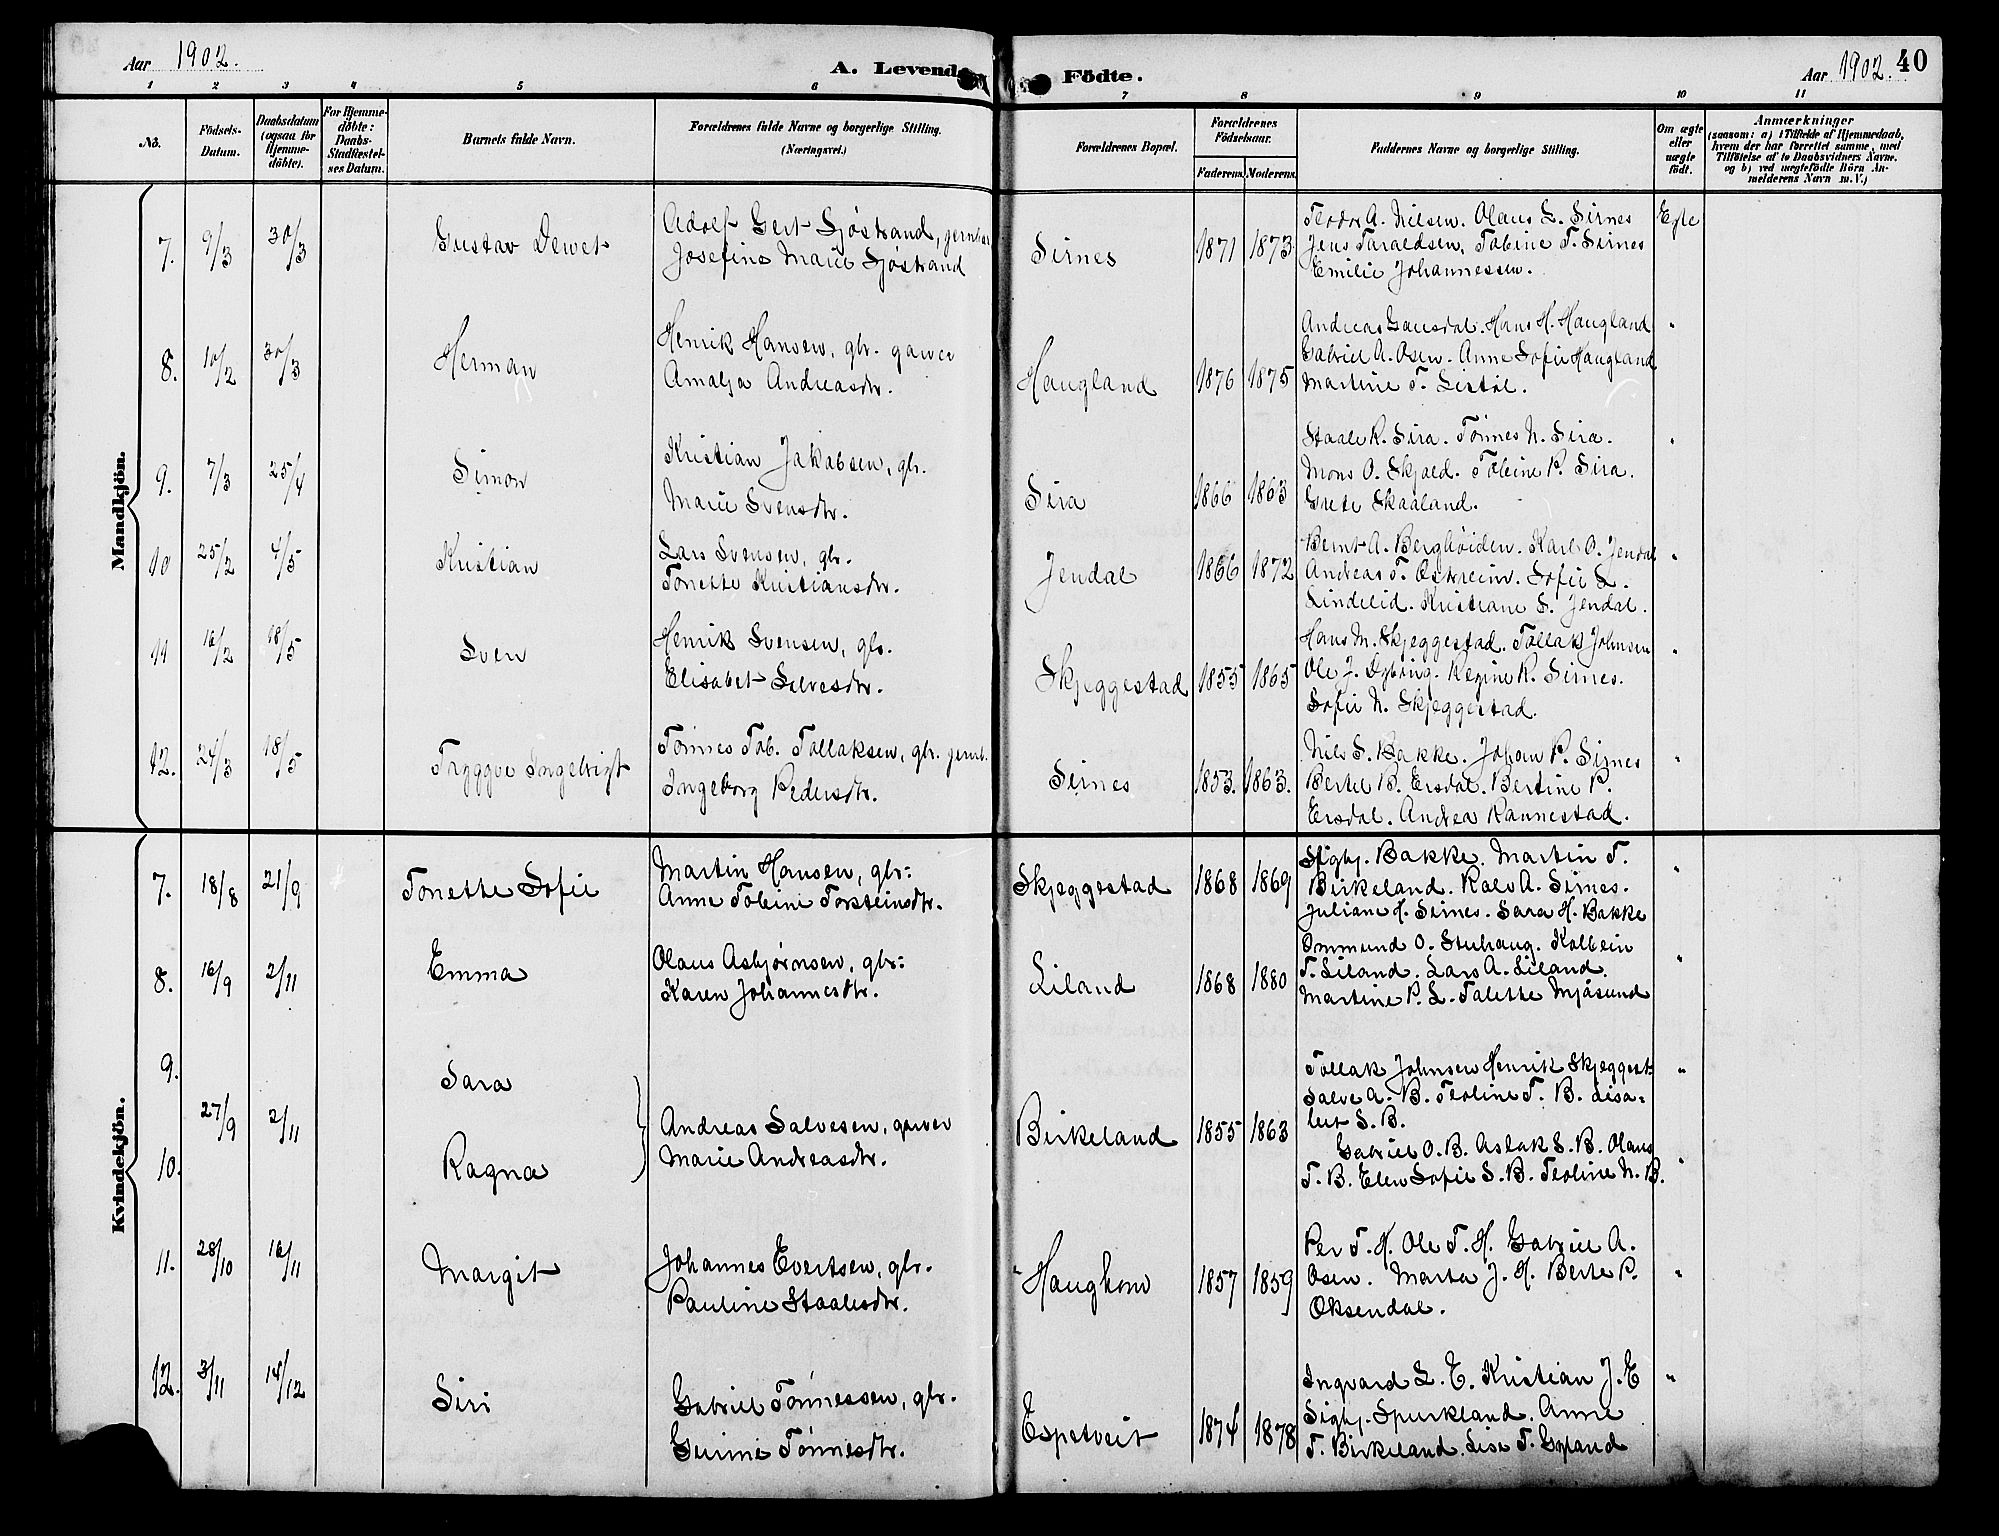 Aar 1902.
A. Levende Födte.
Aar 1902. 40
1 2 3 4 5 6 7 8 9 10 11
No.
Födsels-Datum.
Daabsdatum (ogsaa for Hjemme-döbte).
For Hjemme-döbte: Daabs-Stadfæstel-ses Datum.
Barnets fulde Navn.
Forældrenes fulde Navne og borgerlige Stilling.
(Næringsvei.)
Forældrenes Bopæl.
Forældrenes Födselsaar.
Faderens. Moderens.
Faddernes Navne og borgerlige Stilling.
Om ægte eller uægte födt.
Anmærkninger
(saasom: a) i Tilfælde af Hjemmedaab,
hvem der har forrettet samme, med
Tilföielse af to Daabsvidners Navne.
og b) ved uægtefödte Börn An-
melderens Navn m. V.)
Mandkjön.
7. 9/3 30/3 Gustav Dewet
Adolf Gert Sjöstrand, jernban
Josefine Marie Sjöstrand
Sirnes 1871 1873
Teodor A. Nilsen. Olaus L. Sirnes
Jens Taraldsen, Tobine T. Sirnes
Emilie Johannessen.
Egte
8. 10/2 30/3 Herman
Henrik Hansen, gbr. garver
Amalja Andreasdtr.
Haugland 1876 1875
Andreas Gausdal. Hans H. Haugland
Gabriel A. Osen. Anne Sofie Haugland
Martine T. Listöl.
"
9. 7/3 25/4 Simon
Kristian Jakobsen, gbr.
Marie Svensdtr.
Sira 1866 1863
Staale R. Sira. Tönnes N. Sira.
Mons O. Skjold. Tobine P. Sira.
Grete Skaaland.
"
10 25/2 4/5 Kristian
Lars Svensen, gbr.
Tonette Kristiansdtr.
Jendal 1866 1872
Bernt A. Berghöiden. Karl O. Jendal
Andreas T. Ostreim. Sofie L.
Lindelid. Kristiane S. Jendal.
"
11 16/2 18/5 Sven
Henrik Svensen, gbr.
Elisabet Salvesdtr.
Skjeggestad 1855 1865
Hans M. Skjeggestad. Tollak Johnsen
Ole J. Dybing. Regine R. Sirnes.
Sofie N. Skjeggestad.
"
12. 24/3 18/5 Tryggve Ingebrigt
Tönnes Tob. Tollaksen, gbr. jernb.
Ingeborg Pedersdtr.
Sirnes 1853. 1863.
Nils S. Bakke. Johan P. Sirnes
Bertel B. Ersdal. Bertine P.
Ersdal. Andrea Rannestad.
"
Kvindekjön.
7. 18/8 21/9 Tonette Sofie
Martin Hansen, gbr:
Anne Tobine Torsteinsdtr.
Skjeggestad 1868 1869
Sigbj. Bakke. Martin T.
Birkeland. Ralv A. Sirnes.
Juliane H. Sirnes. Sara H. Bakke
"
8. 16/9 2/11 Emma
Olaus Asbjørnsen, gbr:
Karen Johannesdtr.
Liland 1868 1880
Ommund O. Stuhaug. Kolbein
T. Liland. Lars A. Liland.
Martine P. L. Talette Mjåsund
"
9. Sara
27/9 2/11
10. Ragna
Andreas Salvesen, garver
Marie Andreasdtr.
Birkeland 1855 1863
Tollak Johnsen Henrik Skjeggest
Salve A. B. Teoline T. B. Lisa-
bet S. B.
Gabriel O. B. Aslak S. B. Olaus
T. B. Elen Sofie S. B. Teoline N. B.
" "
11. 28/10 16/11 Margit
Johannes Evertsen, gbr.
Pauline Staalesdtr.
Haughom 1857 1859
Per T. H. Ole T. H. Gabriel A.
Osen. Marta J. H. Berte P.
Oksendal.
"
12. 3/11 14/12 Siri
Gabriel Tönnessen, gbr.
Gurine Tönnesdtr.
Espetveit 1874 1878
Ingvard L. E. Kristian J. E
Sigbj. Spurkland. Anne
T. Birkeland. Lise T. Gyland
"